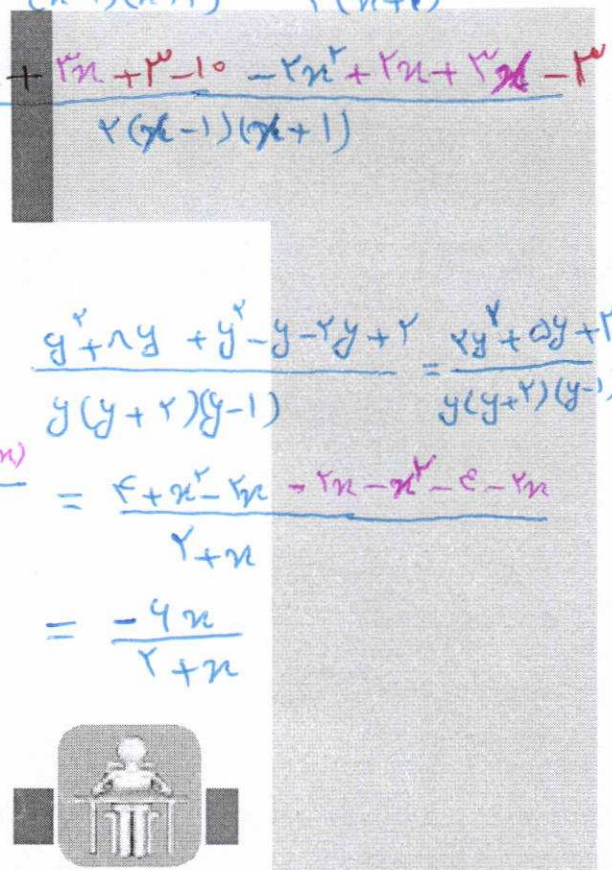 + ۳x + ۳ - ۱۰ - ۲x² + ۲x + ۳x - ۳
۲(x-۱)(x+۱)
y² + ۸y + y² - y - ۲y + ۲ = ۲y² + ۵y + ۲
y(y + ۲)(y-۱) y(y+۲)(y-۱)
= ۴ + x² - ۲x - ۲x - x² - ۴ - ۲x
۲ + x
= -۶x
۲ + x